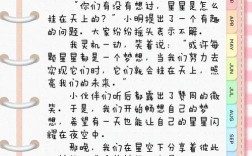 “你们有没有想过，星星是怎么
挂在天上的？”小明提出了一个有趣
的问题，大家纷纷摇头表示不解。
我灵机一动，笑着说：“或许每
颗星星都是一个梦想，当我们努力去
实现它们时，它们就会挂在天上，照
亮我们的未来。”
小伙伴们听后都露出了赞同的微
笑。于是，我们开始畅想自己的梦
想，希望有一天也能让自己的星星闪
耀在夜空中。
那晚，我们在星空下分享着彼此
APR
MAY
JUN
JUL
AUG
SEP